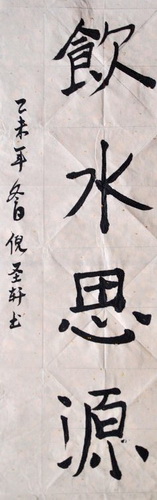 飲水思源
乙未年冬日倪圣轩书